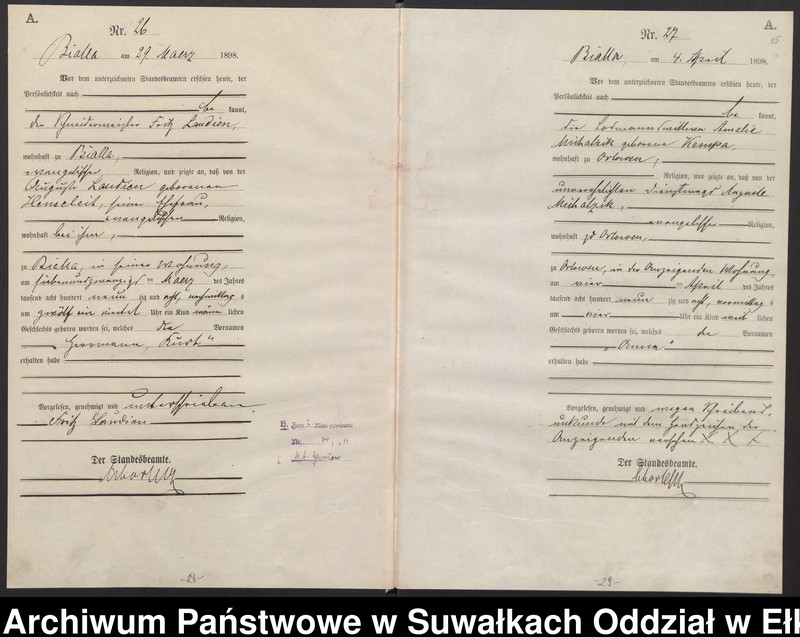 A.
Nr. 26
Bialla am 29. Maerz 1898.
Vor dem unterzeichneten Standesbeamten erschien heute, der
Persönlichkeit nach
be kannt,
der Schneidermeister Fritz Laudien,
wohnhaft zu Bialla,
evangelischer Religion, und zeigte an, daß von der
Auguste Laudien geborenen
Henseleit, seiner Ehefrau,
evangelischer Religion,
wohnhaft bei ihm,
zu Bialla, in seiner Wohnung,
am siebenundzwanzigsten Maerz des Jahres
tausend acht hundert neun zig und acht, nachmittags
um zwölf ein viertel Uhr ein Kind männlichen
Geschlechts geboren worden sei, welches die Vornamen
Herrmann, Kurt"
erhalten habe
Vorgelesen, genehmigt und unterschrieben.
Fritz Laudien
Der Standesbeamte.
Nr.
-28-
A.
15
Nr. 27
Bialla, am 4. April 1898.
Vor dem unterzeichneten Standesbeamten erschien heute, der
Persönlichkeit nach
be kannt,
die Losmannswittwe Amalie
Michalzik geborene Kempa,
wohnhaft zu Orlowen,
Religion, und zeigte an, daß von der
unverehelichten Dienstmagd Auguste
Michalzik,
evangelischer Religion,
wohnhaft zu Orlowen,
zu Orlowen, in der Anzeigenden Wohnung,
am vier ten April des Jahres
tausend acht hundert neun zig und acht, vormittags
um vier Uhr ein Kind weib lichen
Geschlechts geboren worden sei, welches de Vornamen
„Anna"
erhalten habe
Vorgelesen, genehmigt und wegen Schreibens-
unkunde mit dem Handzeichen der
Anzeigenden versehen X X X
Der Standesbeamte.
-29-
Archiwum Państwowe w Suwałkach Oddział w Ełk